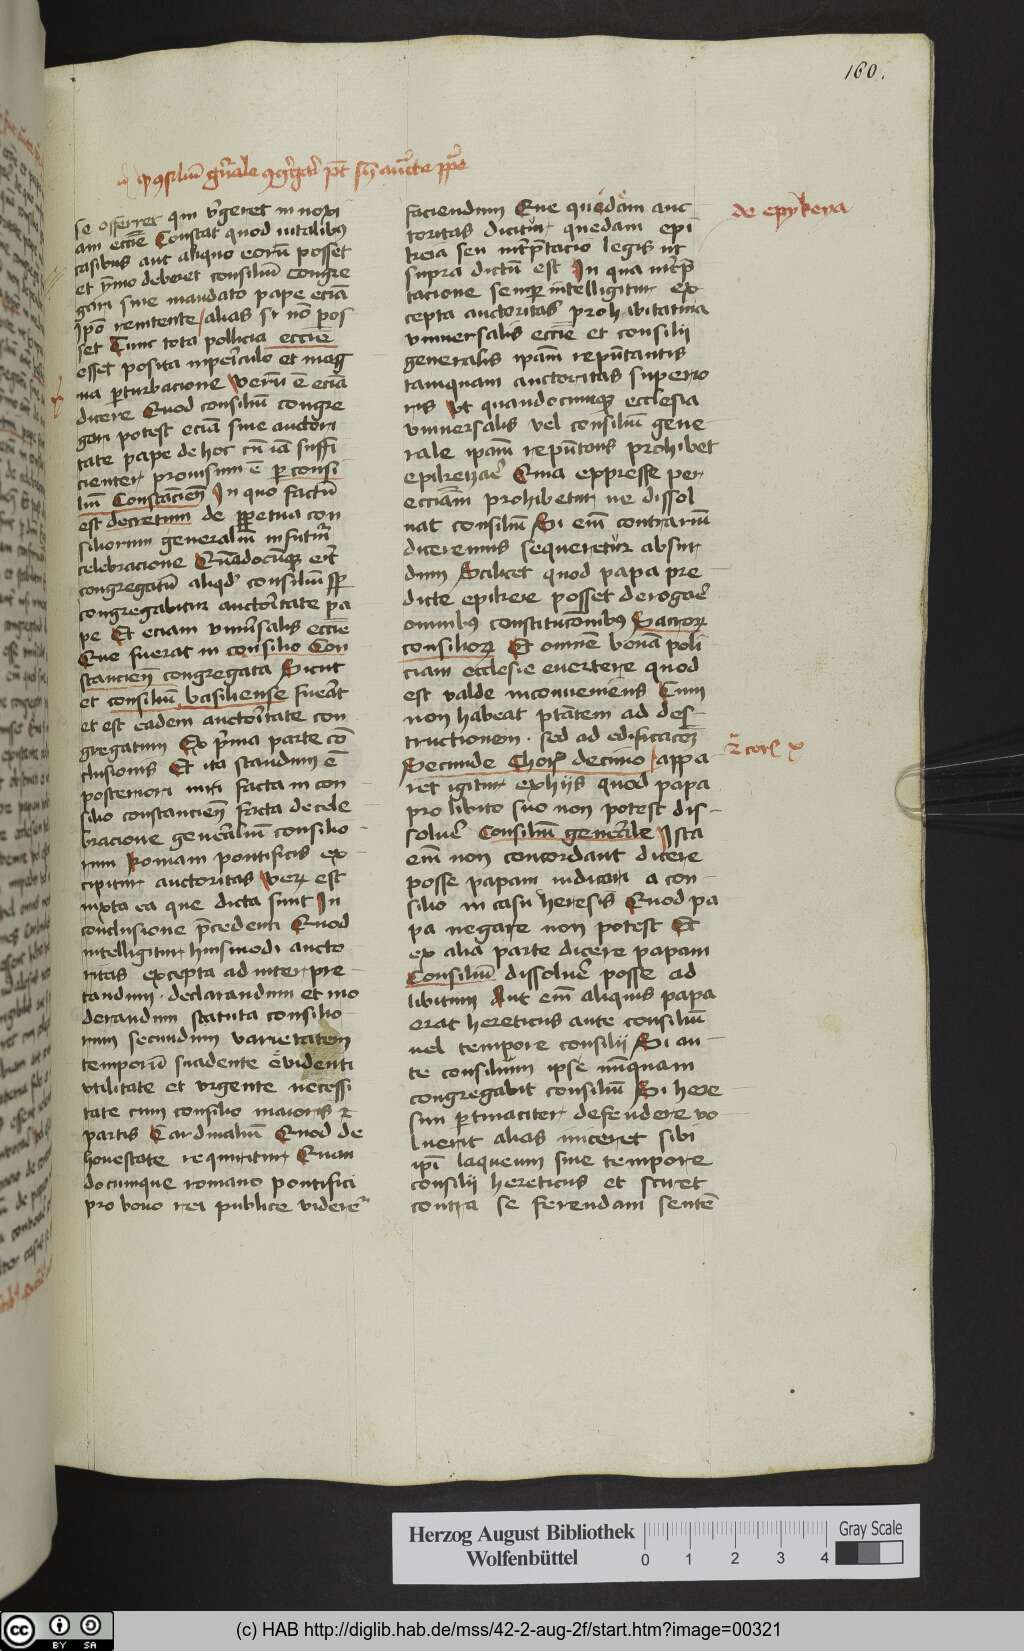 160.
se offerret qui v̄geret in novi
am eccīe Constat quod in talibus
casibus aut aliquo eorū posset
et ymo deberet consiliū congre
gari sine mandato pape eciā
ipō renitente alias si nō pos
set Tunc tota pollicia eccīe
esset posita in peīculo et mag
na p̄turbacione Verū ē eciā
dicere Quod consiliū congre
gari potest eciā sine auctori
tate pape de hoc cū iā suffi
cienter provisum ē per consi
liū Constāncien̄ In quo factū
est decretum de ꝑpetua con
siliorum generaliū in futurū
celebracione Quādocūqꝫ eīt
congregatū aliqd' consiliū sꝑ
congregabitur auctoritate pa
pe Et eciam univ̄salis eccīe
Que fuerat in consilio Con
stancien̄ congregata Sicut
et consiliū basiliense fuerit
et est eadem auctoritate con
gregatum Ex p̄ma parte cō
clusionis Et ita standum ē
posteriori nisi facta in con
silio constancien̄ facta de cele
bracione generaliū consilio
rum Romani pontificis ex
cipitur auctoritas Veꝝ est
iuxta ea que dicta sunt In
conclusione p̄cedenti Quod
intelligitur huismodi aucto
ritas excepta ad interpre
tandum declarandum et mo
derandum statuta consilio
rum secundum varietatem
temporū suadente evidenti
utilitate et urgente necessi
tate cum consilio maioris
partis Cardinaliū Quod de
honestate requiritur Quan
documque romano pontifici
pro bono rei publice videre'
faciendum Que quedam auc
toritas dicitur quedam epi
keia seu int̄p̄tacio legis ut
supra dictū est In qua int̄p̄
tacione semꝑ intelligitur ex
cepta auctoritas prohibitativa
universalis eccīe et consilii
generalis ipām repn̄tantis
tamquam auctoritas superio
ris Ut quandocumqꝫ ecclesia
universalis vel consiliū gene
rale ipam repn̄tans prohibet
epikeizaē Quia expresse per
ecciām prohibetur ne dissol
uat consiliū Si em̄ contrariū
diceremus sequeretur absur
dum Scilicet quod papa pre
dicte epikeie posset derogaē
omnibus constitucōnibus Sacroꝝ
consilioꝝ Et omnem bonā poli
ciam ecclesie evertere quod
est valde inconveniens Cum
non habeat ptātem ad des
tructionem sed ad edificacoēꝫ
Secunde Chor̄ decimo appa
ret igitur ex hijs quod papa
pro libito suo non potest dis
solvē Consiliū generale Ista
em̄ non concordant dicere
posse papam iudicari a con
silio in casu heresis Quod pa
pa negare non potest Et
ex alia parte dicere papam
Consiliū dissolvē posse ad
libitum Aut em̄ aliquis papa
erat hereticus ante consiliū
vel tempore consilij Si an
te consilium ipse nūquam
congregabit consiliū Si here
sim pertinaciter defendere vo
luerit alias iniceret sibi
ipī laqueum sive tempore
consilij hereticus et sciret
contra se ferendam sentē
de epykeya
Herzog August Bibliothek
Wolfenbüttel
0 1 2 3 4
Gray Scale
(c) HAB http://diglib.hab.de/mss/42-2-aug-2f/start.htm?image=00321
CC BY SA